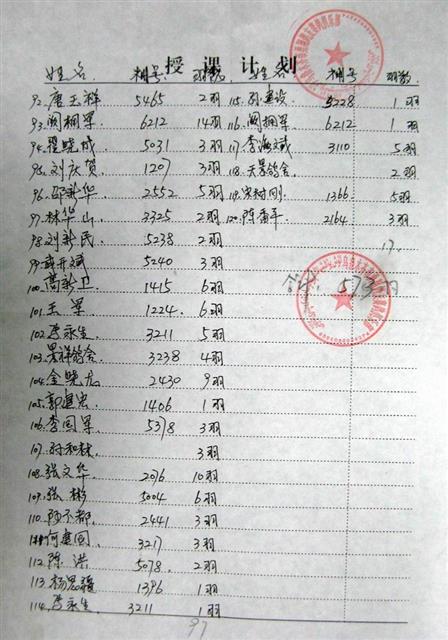 授课计划
姓名 棚号 羽数 姓名 棚号 羽数
92. 唐玉祥 5465 2羽 115. 孙建设 5228 1羽
93. 阎桐军 6212 14羽 116. 阎桐军 6212 1羽
94. 程晓成 5031 3羽 117. 李海斌 3110 5羽
95. 刘庆贺 1207 3羽 118. 天景鸽舍 2羽
96. 邵新华 2552 5羽 119. 宋树刚 1366 5羽
97. 林华山 3325 2羽 120. 陈军 2164 3羽
98. 刘新民 5238 2羽 17
99. 开斌 5240 3羽
100. 高新卫 1415 6羽
101. 王军 1224 6羽
102. 李永生 3211 5羽
103. 昊祥鸽舍 3238 4羽
104. 金晓龙 2430 9羽
105. 郭建忠 1406 1羽
106. 李国军 5378 3羽
107. 孙和林 3羽
108. 张文华 2076 10羽
109. 张彬 5004 6羽
110. 顾不都 2441 3羽
111. 何建国 3217 3羽
112. 陈洪 5078 2羽
113. 杨思强 1396 1羽
114. 李永生 3211 1羽
97